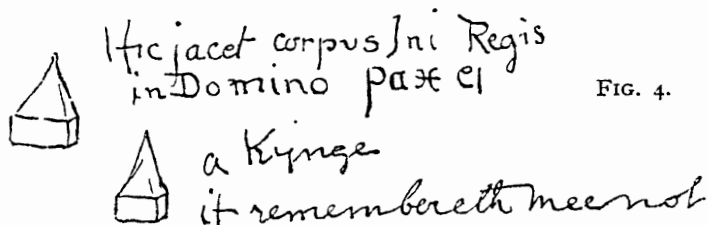 Hic jacet corpus Ini Regis
in Domino pax ei
FIG. 4.
a Kynge
it remembereth mee not